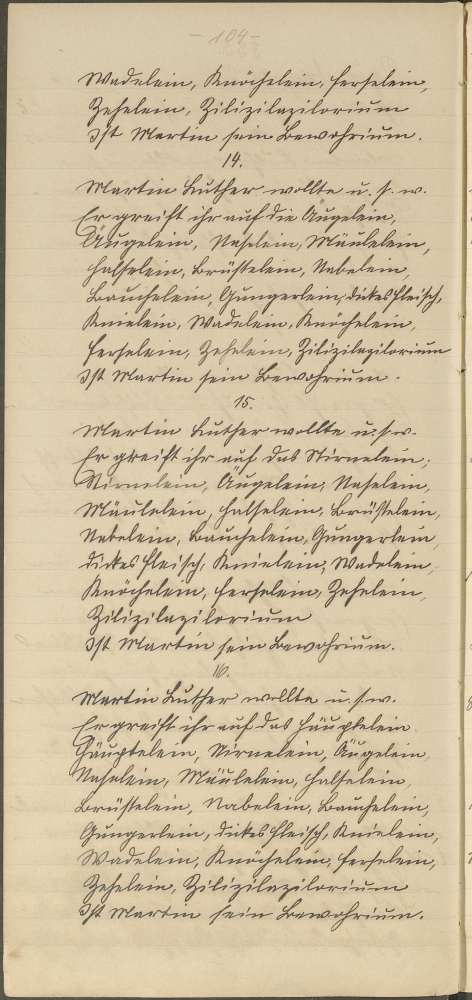 - 104 -
Wadelein, Knöchelein, Ferselein,
Zehelein, Zilizilazilorium
Ist Martin sein Bewohrium.
14.
Martin Luther wollte u. s. w.
Er greift ihr auf die Äugelein,
Äugelein, Naselein, Mäulelein,
Halselein, Brüstelein, Nabelein,
Bäuchelein, Gungerlein, dickes Fleisch,
Knielein, Wadelein, Knöchelein,
Ferselein, Zehelein, Zilizilazilorium
Ist Martin sein Bewohrium.
15.
Martin Luther wollte u. s. w.
Er greift ihr auf das Stirnelein,
Stirnelein, Äugelein, Naselein,
Mäulelein, Halselein, Brüstelein,
Nabelein, Bäuchelein, Gungerlein,
dickes Fleisch, Knielein, Wadelein,
Knöchelein, Ferselein, Zehelein,
Zilizilazilorium
Ist Martin sein Bewohrium.
16.
Martin Luther wollte u. s. w.
Er greift ihr auf das Häuptelein
Häuptelein, Stirnelein, Äugelein,
Naselein, Mäulelein, Halselein,
Brüstelein, Nabelein, Bäuchelein,
Gungerlein, dickes Fleisch, Knielein,
Wadelein, Knöchelein, Ferselein,
Zehelein, Zilizilazilorium
Ist Martin sein Bewohrium.